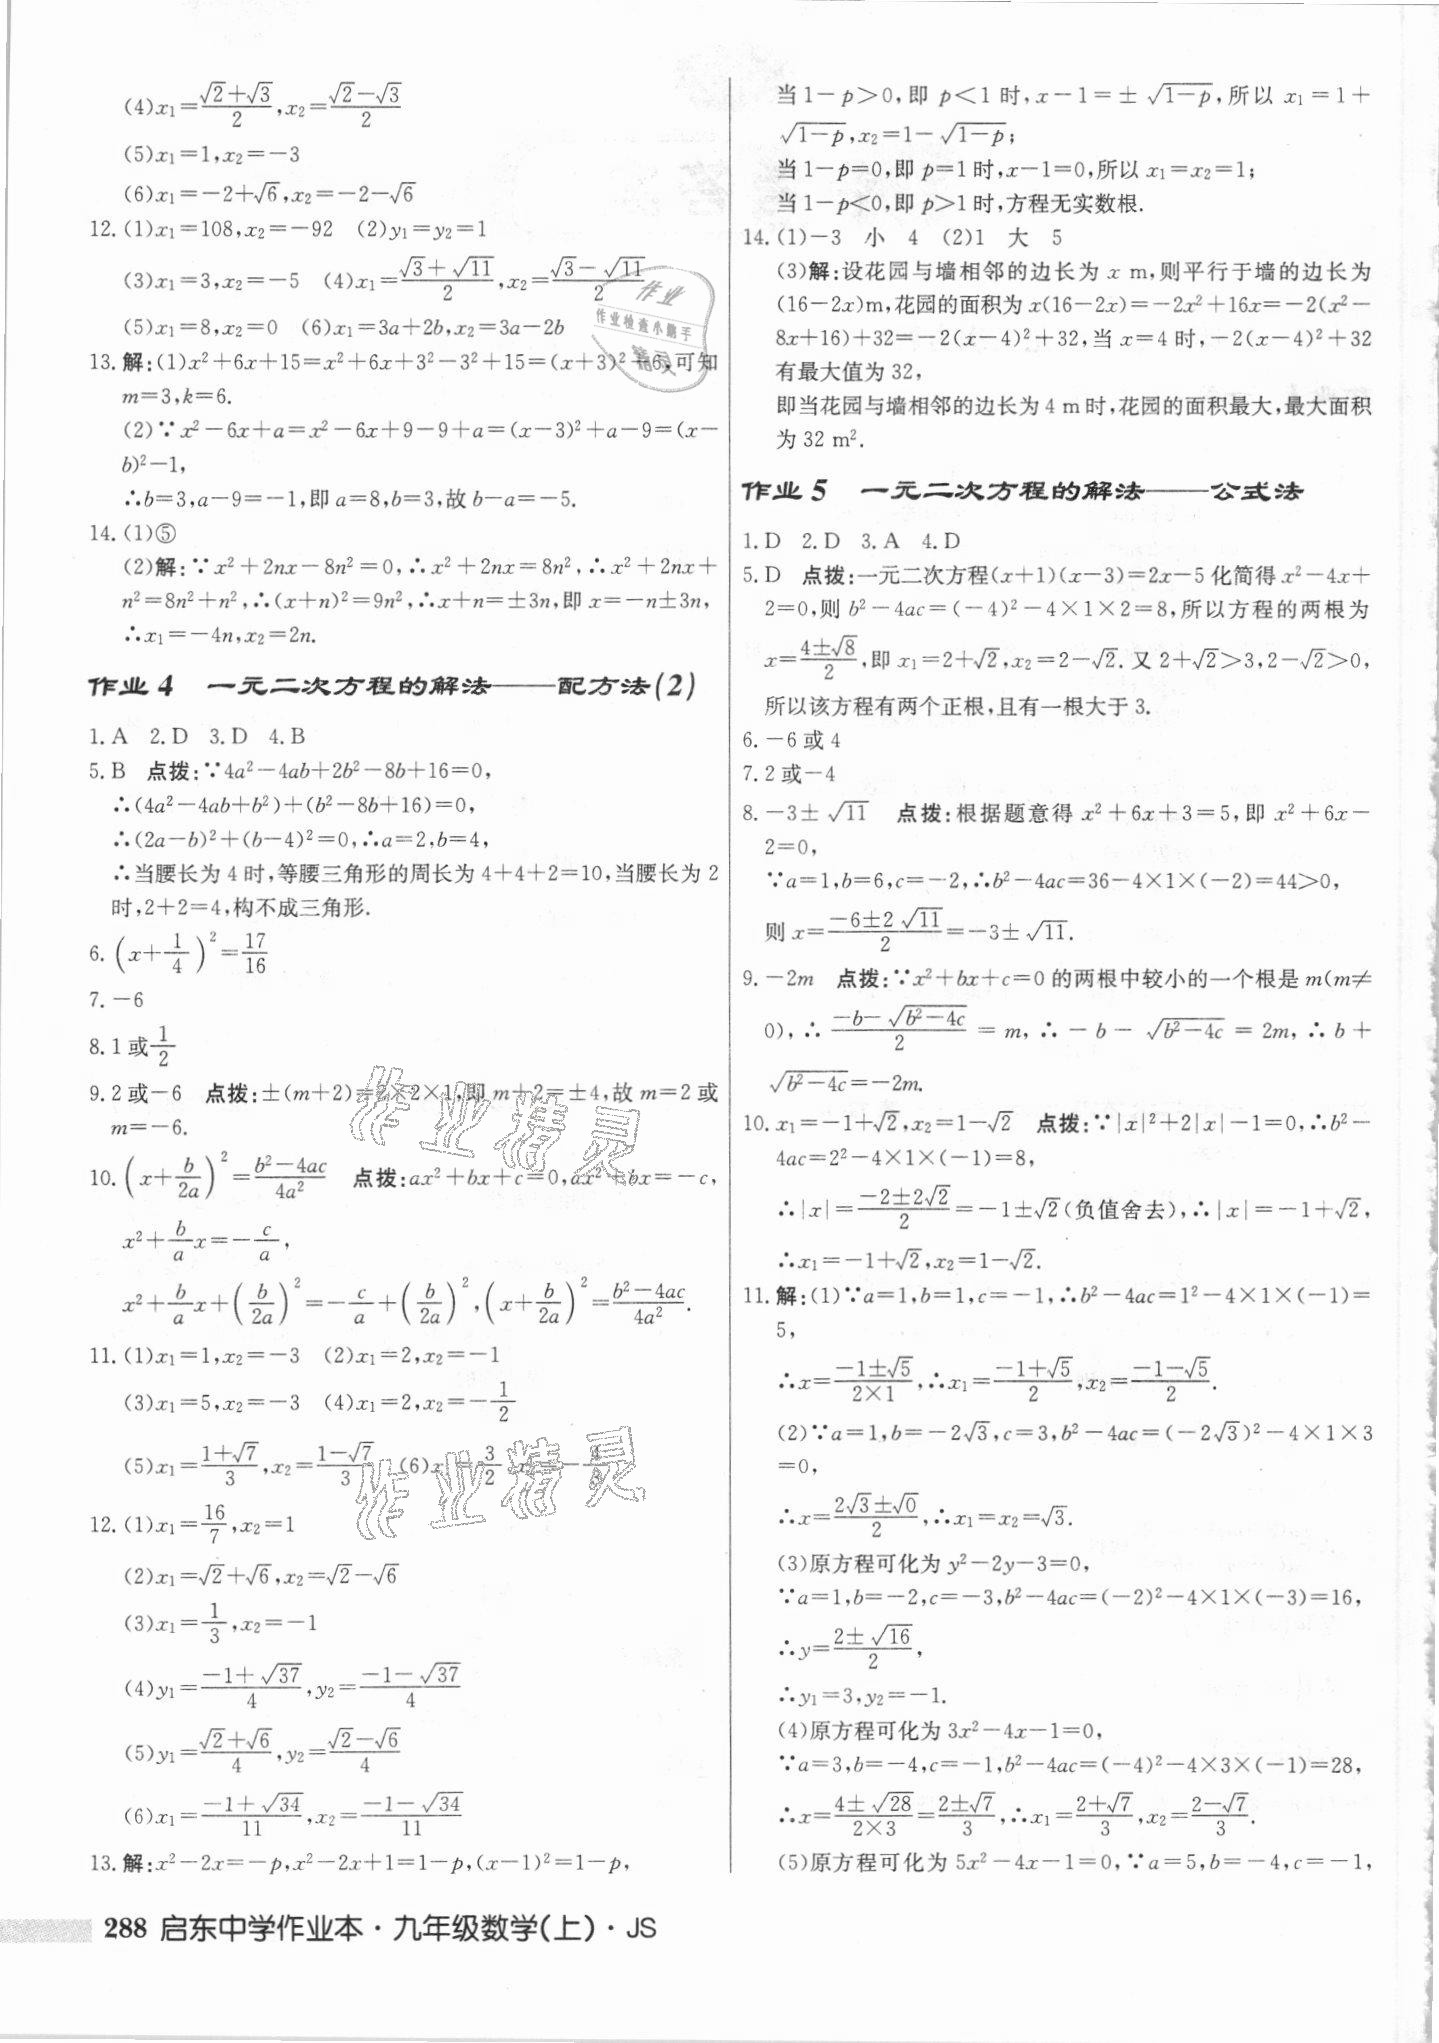 (4)x₁=(√2+√3)/2,x₂=(√2−√3)/2
(5)x₁=1,x₂=−3
(6)x₁=−2+√6,x₂=−2−√6
12.(1)x₁=108,x₂=−92 (2)y₁=y₂=1
(3)x₁=3,x₂=−5 (4)x₁=(√3+√11)/2,x₂=(√3−√11)/2
(5)x₁=8,x₂=0 (6)x₁=3a+2b,x₂=3a−2b
13.解:(1)x²+6x+15=x²+6x+3²−3²+15=(x+3)²+6,可知
m=3,k=6.
(2)∵x²−6x+a=x²−6x+9−9+a=(x−3)²+a−9=(x−
b)²−1,
∴b=3,a−9=−1,即a=8,b=3,故b−a=−5.
14.(1)⑤
(2)解:∵x²+2nx−8n²=0,∴x²+2nx=8n²,∴x²+2nx+
n²=8n²+n²,∴(x+n)²=9n²,∴x+n=±3n,即x=−n±3n,
∴x₁=−4n,x₂=2n.
作业4 一元二次方程的解法——配方法(2)
1.A 2.D 3.D 4.B
5.B 点拨:∵4a²−4ab+2b²−8b+16=0,
∴(4a²−4ab+b²)+(b²−8b+16)=0,
∴(2a−b)²+(b−4)²=0,∴a=2,b=4,
∴当腰长为4时,等腰三角形的周长为4+4+2=10,当腰长为2
时,2+2=4,构不成三角形.
6.(x+1/4)²=17/16
7.−6
8.1或1/2
9.2或−6 点拨:±(m+2)=2×2×1,即m+2=±4,故m=2或
m=−6.
10.(x+b/2a)²=(b²−4ac)/4a² 点拨:ax²+bx+c=0,ax²+bx=−c,
x²+(b/a)x=−c/a,
x²+(b/a)x+(b/2a)²=−c/a+(b/2a)²,(x+b/2a)²=(b²−4ac)/4a².
11.(1)x₁=1,x₂=−3 (2)x₁=2,x₂=−1
(3)x₁=5,x₂=−3 (4)x₁=2,x₂=−1/2
(5)x₁=(1+√7)/3,x₂=(1−√7)/3 (6)x₁=3/2,x₂=−4/3
12.(1)x₁=16/7,x₂=1
(2)x₁=√2+√6,x₂=√2−√6
(3)x₁=1/3,x₂=−1
(4)y₁=(−1+√37)/4,y₂=(−1−√37)/4
(5)y₁=(√2+√6)/4,y₂=(√2−√6)/4
(6)x₁=(−1+√34)/11,x₂=(−1−√34)/11
13.解:x²−2x=−p,x²−2x+1=1−p,(x−1)²=1−p,
当1−p>0,即p<1时,x−1=±√(1−p),所以x₁=1+
√(1−p),x₂=1−√(1−p);
当1−p=0,即p=1时,x−1=0,所以x₁=x₂=1;
当1−p<0,即p>1时,方程无实数根.
14.(1)−3 小 4 (2)1 大 5
(3)解:设花园与墙相邻的边长为x m,则平行于墙的边长为
(16−2x)m,花园的面积为x(16−2x)=−2x²+16x=−2(x²−
8x+16)+32=−2(x−4)²+32,当x=4时,−2(x−4)²+32
有最大值为32,
即当花园与墙相邻的边长为4 m时,花园的面积最大,最大面积
为32 m².
作业5 一元二次方程的解法——公式法
1.D 2.D 3.A 4.D
5.D 点拨:一元二次方程(x+1)(x−3)=2x−5化简得x²−4x+
2=0,则b²−4ac=(−4)²−4×1×2=8,所以方程的两根为
x=(4±√8)/2,即x₁=2+√2,x₂=2−√2.又2+√2>3,2−√2>0,
所以该方程有两个正根,且有一根大于3.
6.−6或4
7.2或−4
8.−3±√11 点拨:根据题意得x²+6x+3=5,即x²+6x−
2=0,
∵a=1,b=6,c=−2,∴b²−4ac=36−4×1×(−2)=44>0,
则x=(−6±2√11)/2=−3±√11.
9.−2m 点拨:∵x²+bx+c=0的两根中较小的一个根是m(m≠
0),∴(−b−√(b²−4c))/2=m,∴−b−√(b²−4c)=2m,∴b+
√(b²−4c)=−2m.
10.x₁=−1+√2,x₂=1−√2 点拨:∵|x|²+2|x|−1=0,∴b²−
4ac=2²−4×1×(−1)=8,
∴|x|=(−2±2√2)/2=−1±√2(负值舍去),∴|x|=−1+√2,
∴x₁=−1+√2,x₂=1−√2.
11.解:(1)∵a=1,b=1,c=−1,∴b²−4ac=1²−4×1×(−1)=
5,
∴x=(−1±√5)/(2×1),∴x₁=(−1+√5)/2,x₂=(−1−√5)/2.
(2)∵a=1,b=−2√3,c=3,b²−4ac=(−2√3)²−4×1×3
=0,
∴x=(2√3±√0)/2,∴x₁=x₂=√3.
(3)原方程可化为y²−2y−3=0,
∵a=1,b=−2,c=−3,b²−4ac=(−2)²−4×1×(−3)=16,
∴y=(2±√16)/2,
∴y₁=3,y₂=−1.
(4)原方程可化为3x²−4x−1=0,
∵a=3,b=−4,c=−1,b²−4ac=(−4)²−4×3×(−1)=28,
∴x=(4±√28)/(2×3)=(2±√7)/3,∴x₁=(2+√7)/3,x₂=(2−√7)/3.
(5)原方程可化为5x²−4x−1=0,∵a=5,b=−4,c=−1,
288 启东中学作业本·九年级数学(上)·JS
作业
作业检查小助手
精灵
作业精灵
作业精灵